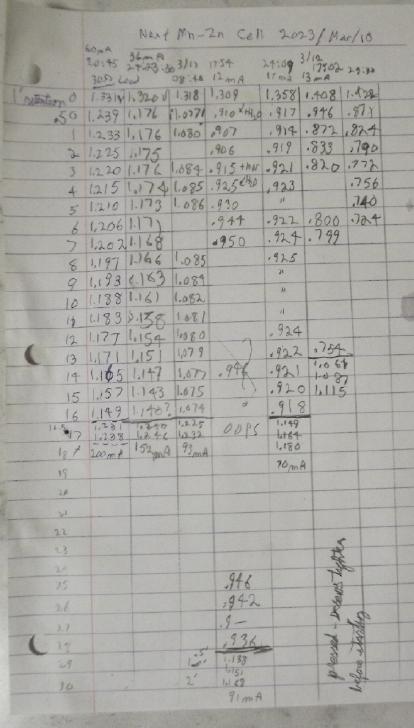 Next Mn-Zn Cell 2023/Mar/10
60mA 36mA 3/12 1754 24:09 3/12
20:45 08:40 12mA 11mA 17:02
30Ω Load 13mA
0 1.331V 1.320V 1.318 1.309 1.358 1.408 1.428
.50 1.239 1.176 .917 .946 .871
1 1.233 1.176 1.080 .907 .914 .872 .824
2 1.225 1.175 .906 .919 .833 .790
3 1.220 1.176 1.084 .915 .921 .820 .772
4 1.215 1.174 1.085 .925 .923 .756
5 1.210 1.173 1.086 .930 " .740
6 1.206 1.171 .944 .922 .800 .724
7 1.202 1.168 .950 .924 .799
8 1.197 1.166 1.085 .925
9 1.193 1.163 1.084 "
10 1.188 1.161 1.082 "
11 1.183 1.158 1.081 "
12 1.177 1.154 1.080 .924
13 1.171 1.151 1.079 .922 .754
14 1.165 1.147 1.077 .946 .921 1.068
15 1.157 1.143 1.075 .920 1.087
1.115
16 1.149 1.140? 1.074 " .918
1.231 1.225 OOPS 1.149
17 1.238 1.246 1.232 1.164
18 200mA 152mA 93mA 1.180
19 90mA
20
21
22
23
25 .946
26 .942
27 .9-
28 .936
29 1' 1.151
30 2' 1.168
91mA
pressed - screws tighter
before starting